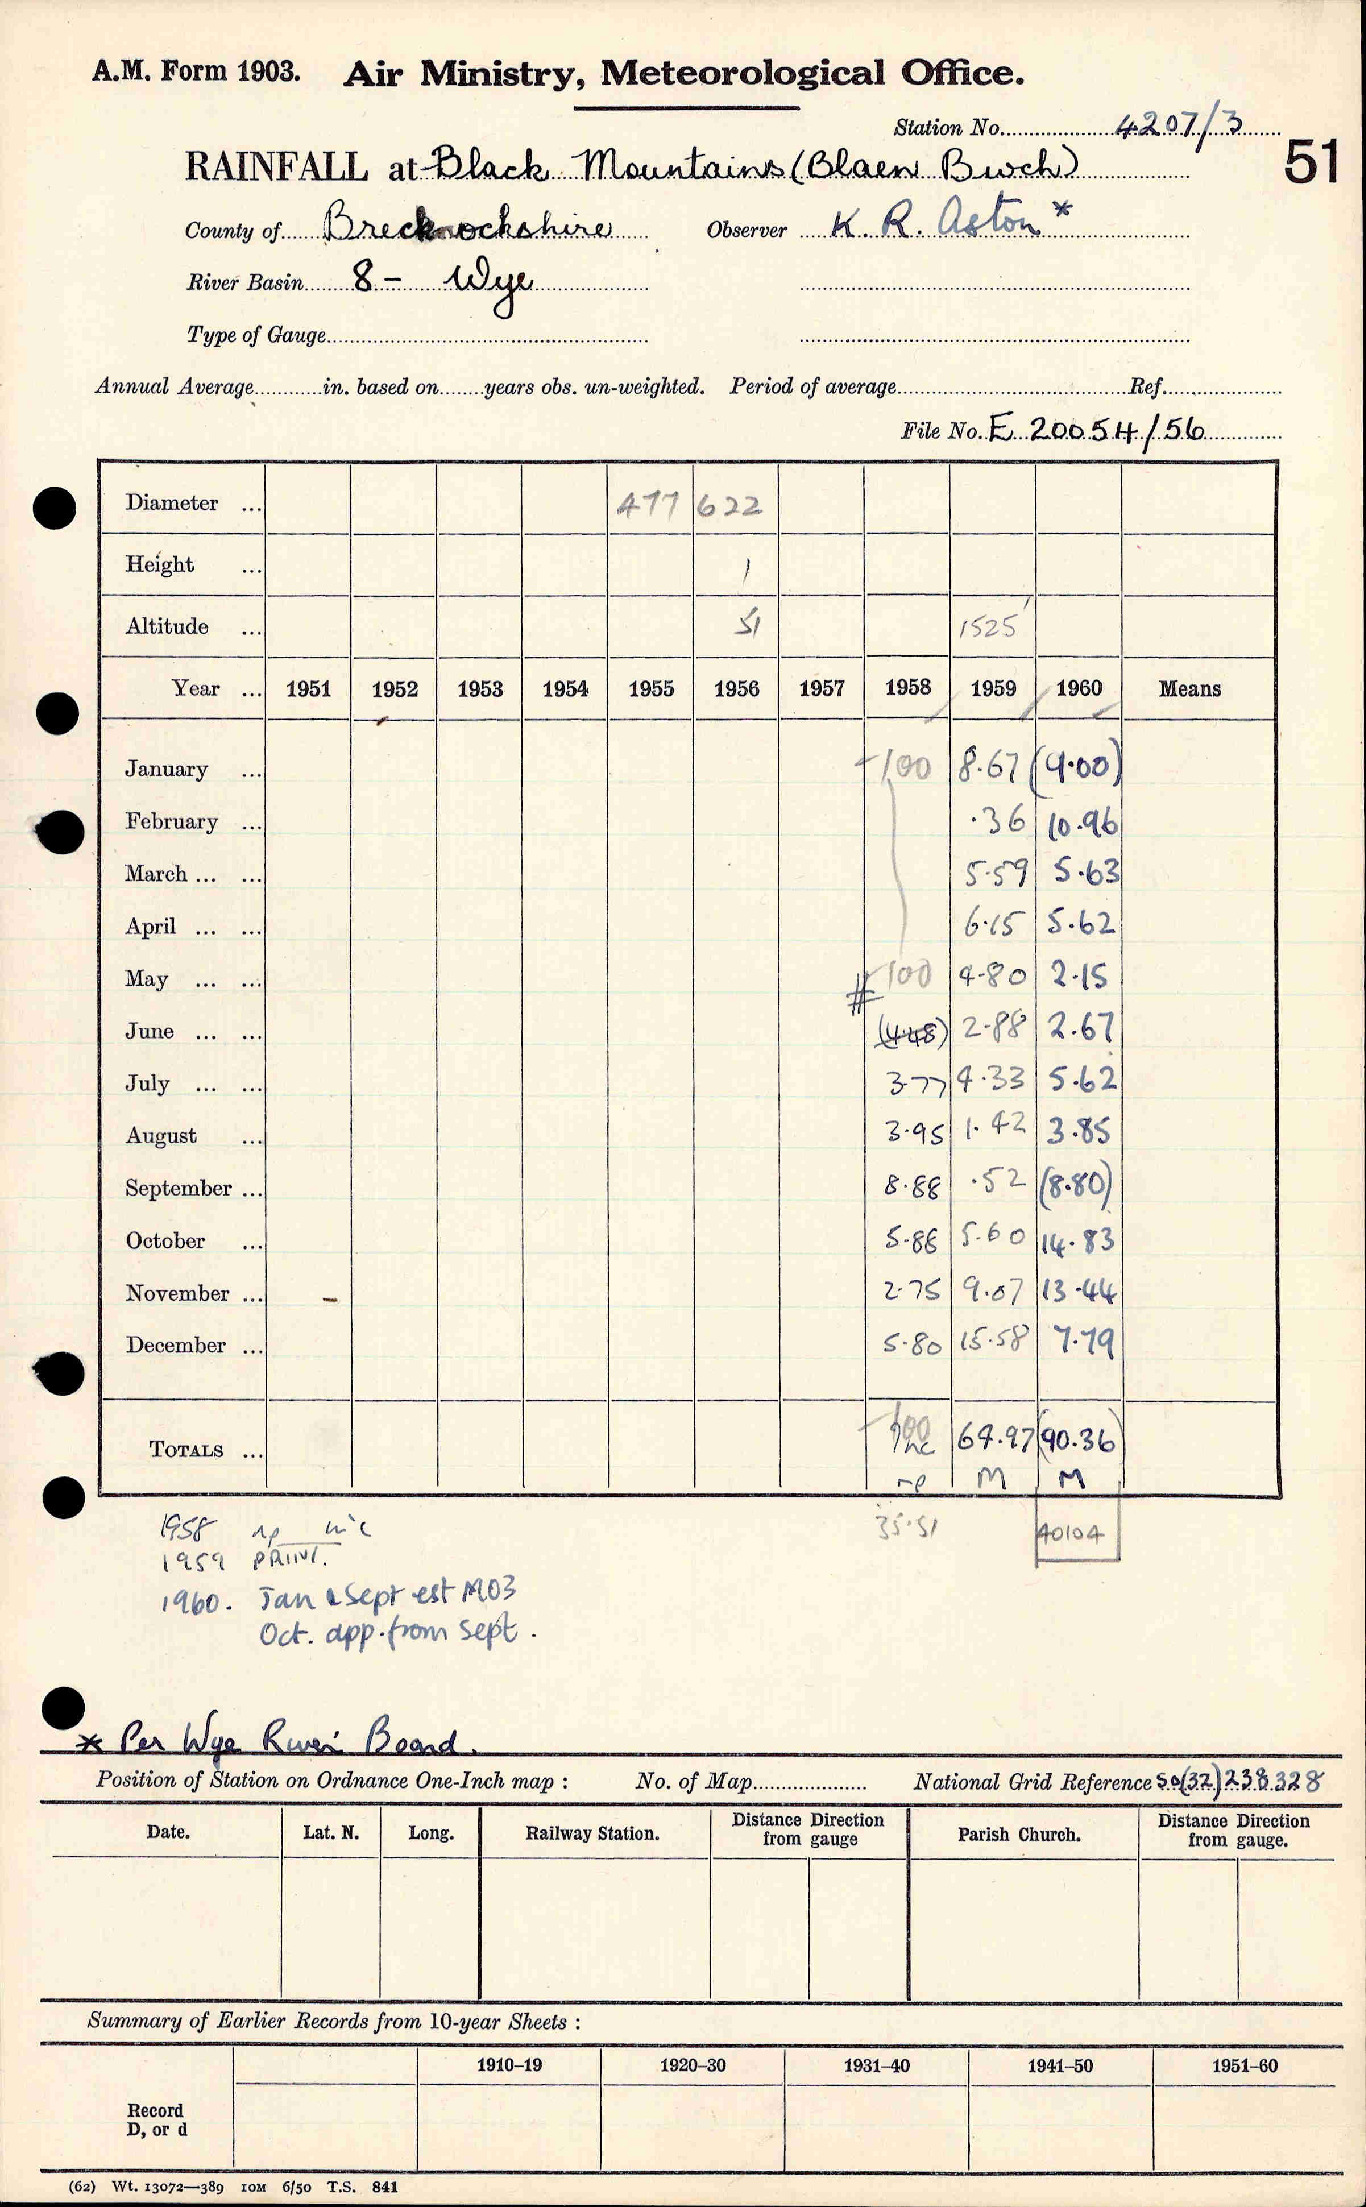 A.M. Form 1903. Air Ministry, Meteorological Office.
Station No. 4207/3
51
RAINFALL at Black Mountains (Blaen Bwch)
County of Brecknockshire Observer K. R. Aston *
River Basin 8 - Wye
Type of Gauge
Annual Average in. based on years obs. un-weighted. Period of average Ref.
File No. E 20054/56
Diameter ... 477 622
Height ... 1
Altitude ... 51 1525'
Year ... 1951 1952 1953 1954 1955 1956 1957 1958 1959 1960 Means
January ... -100 8.67 (9.00)
February ... .36 10.96
March ... ... 5.59 5.63
April ... ... 6.15 5.62
May ... ... -100 4.80 2.15
June ... ... # (4.48) 2.88 2.67
July ... ... 3.77 4.33 5.62
August ... 3.95 1.42 3.85
September ... 8.88 .52 (8.80)
October ... 5.88 5.60 14.83
November ... 2.75 9.07 13.44
December ... 5.80 15.58 7.79
TOTALS ... -100 Inc 64.97 (90.36)
np M M
35.51 40104
1958 np inc
1959 PRINT.
1960. Jan & Sept est MO3
Oct. app. from Sept.
* Per Wye River Board.
Position of Station on Ordnance One-Inch map : No. of Map National Grid Reference SO(32)238328
Date. Lat. N. Long. Railway Station. Distance Direction from gauge Parish Church. Distance Direction from gauge.
Summary of Earlier Records from 10-year Sheets :
1910–19 1920–30 1931–40 1941–50 1951–60
Record
D, or d
(62) Wt. 13072—389 10M 6/50 T.S. 841